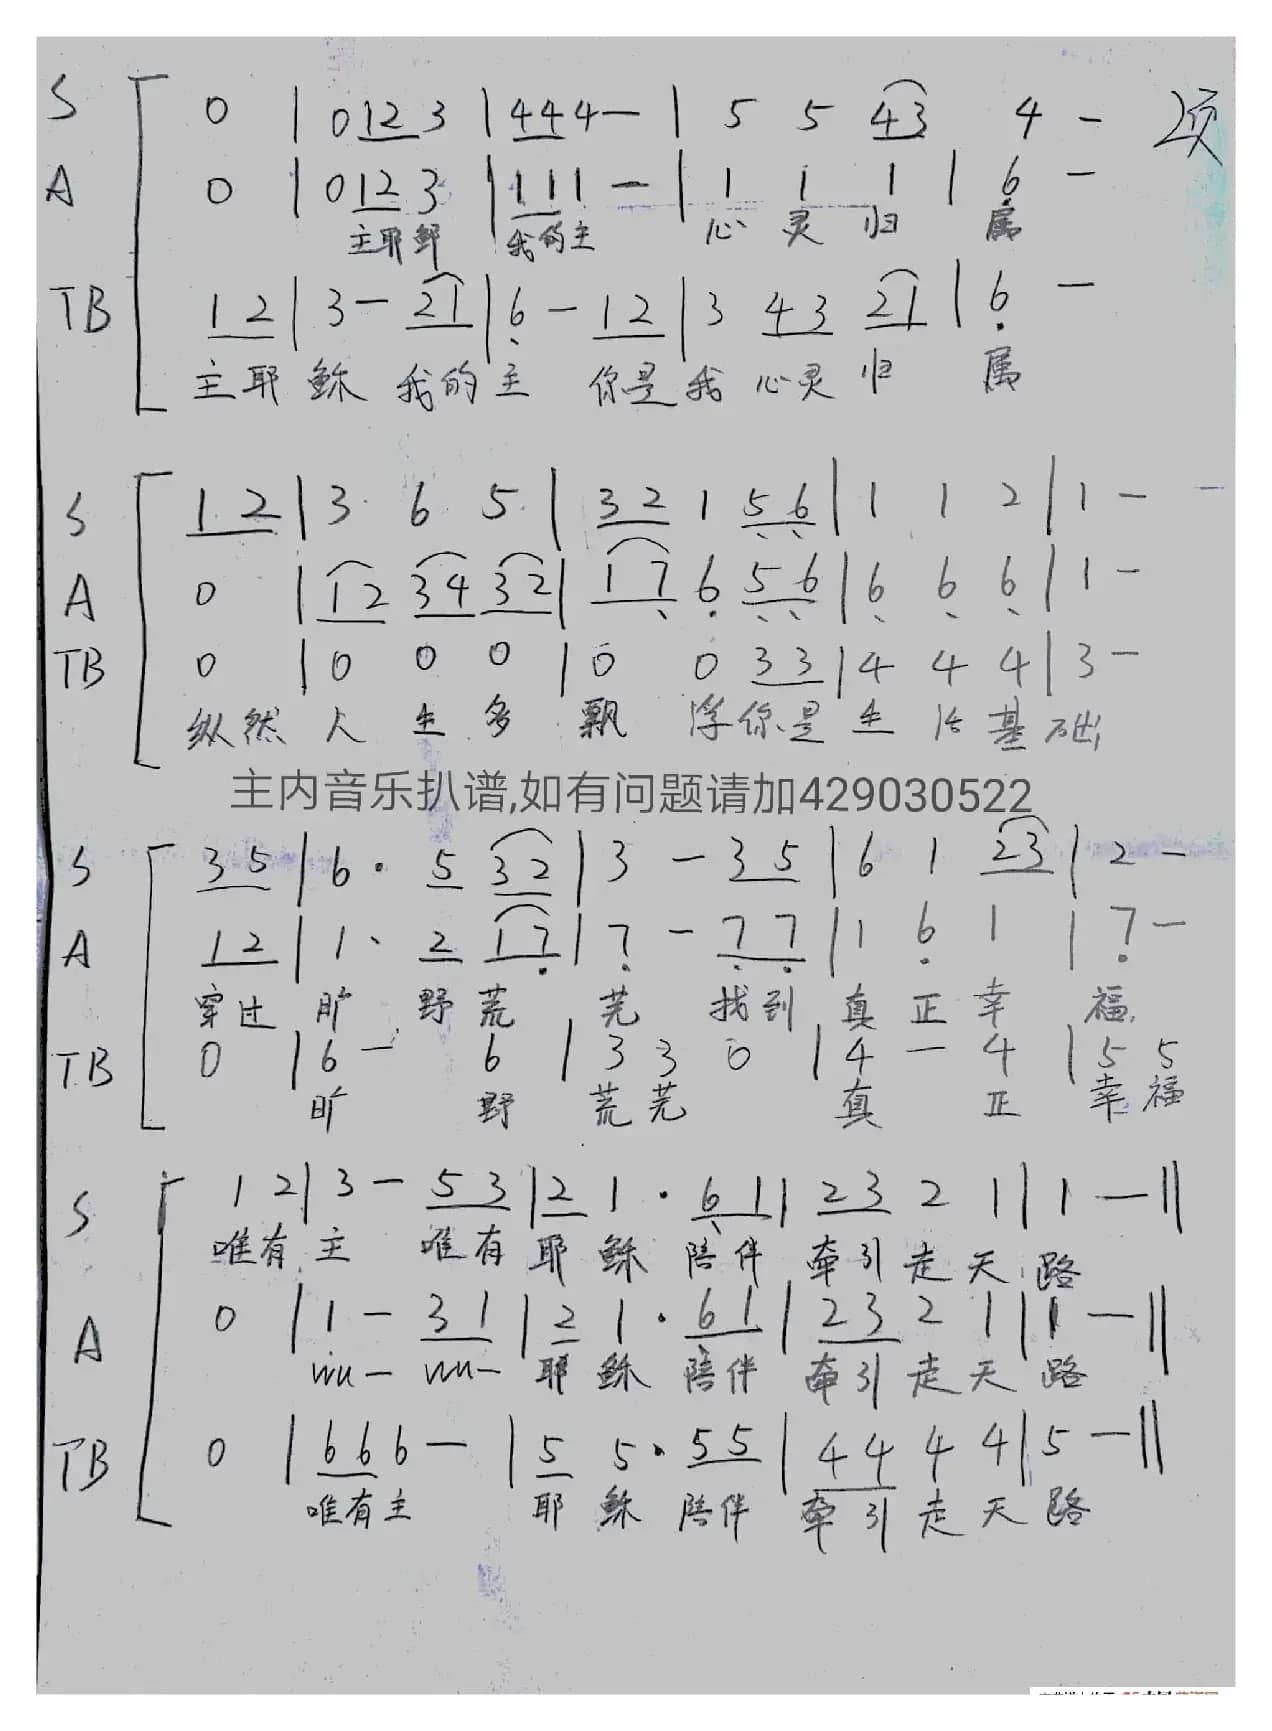 S 0 | 0 12 3 | 444 — | 5 5 43 4 — 2页
A 0 | 0 12 3 | 111 — | 1 1 1 | 6 —
主耶稣 我的主 心 灵 归 属
TB 12 | 3 — 21 | 6 — 12 | 3 43 21 | 6 —
主耶稣 我的主 你是我 心灵归 属
S 12 | 3 6 5 | 32 1 56 | 1 1 2 | 1 —
A 0 | 12 34 32 | 17 6 56 | 6 6 6 | 1 —
TB 0 | 0 0 0 | 0 0 33 | 4 4 4 | 3 —
纵然 人 生 多 飘 浮你是 生 活 基 础
主内音乐扒谱,如有问题请加429030522
S 35 | 6· 5 32 | 3 — 35 | 6 1 23 | 2 —
A 12 | 1· 2 17 | 7 — 77 | 1 6 1 | 7 —
穿过 旷 野荒 芜 找到 真 正 幸 福
TB 0 | 6 — 6 | 3 3 0 | 4 — 4 | 5 5
旷 野 荒芜 真 正 幸福
S 12 | 3 — 53 | 2 1· 61 | 23 2 1 | 1 — ||
唯有 主 唯有 耶 稣 陪伴 牵引走天路
A 0 | 1 — 31 | 2 1· 61 | 23 2 1 | 1 — ||
wu— wu— 耶 稣 陪伴 牵引走天路
TB 0 | 666 — | 5 5· 55 | 44 4 4 | 5 — ||
唯有主 耶 稣 陪伴 牵引走天路